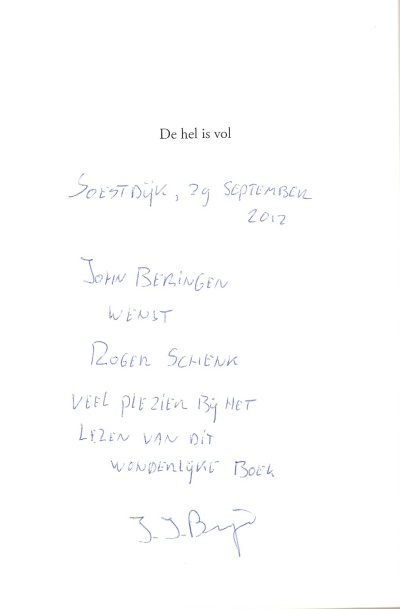 De hel is vol
SOESTDIJK, 29 SEPTEMBER
2012
JOHN BERINGEN
WENST
ROGER SCHENK
VEEL PLEZIER BIJ HET
LEZEN VAN DIT
WONDERLIJKE BOEK